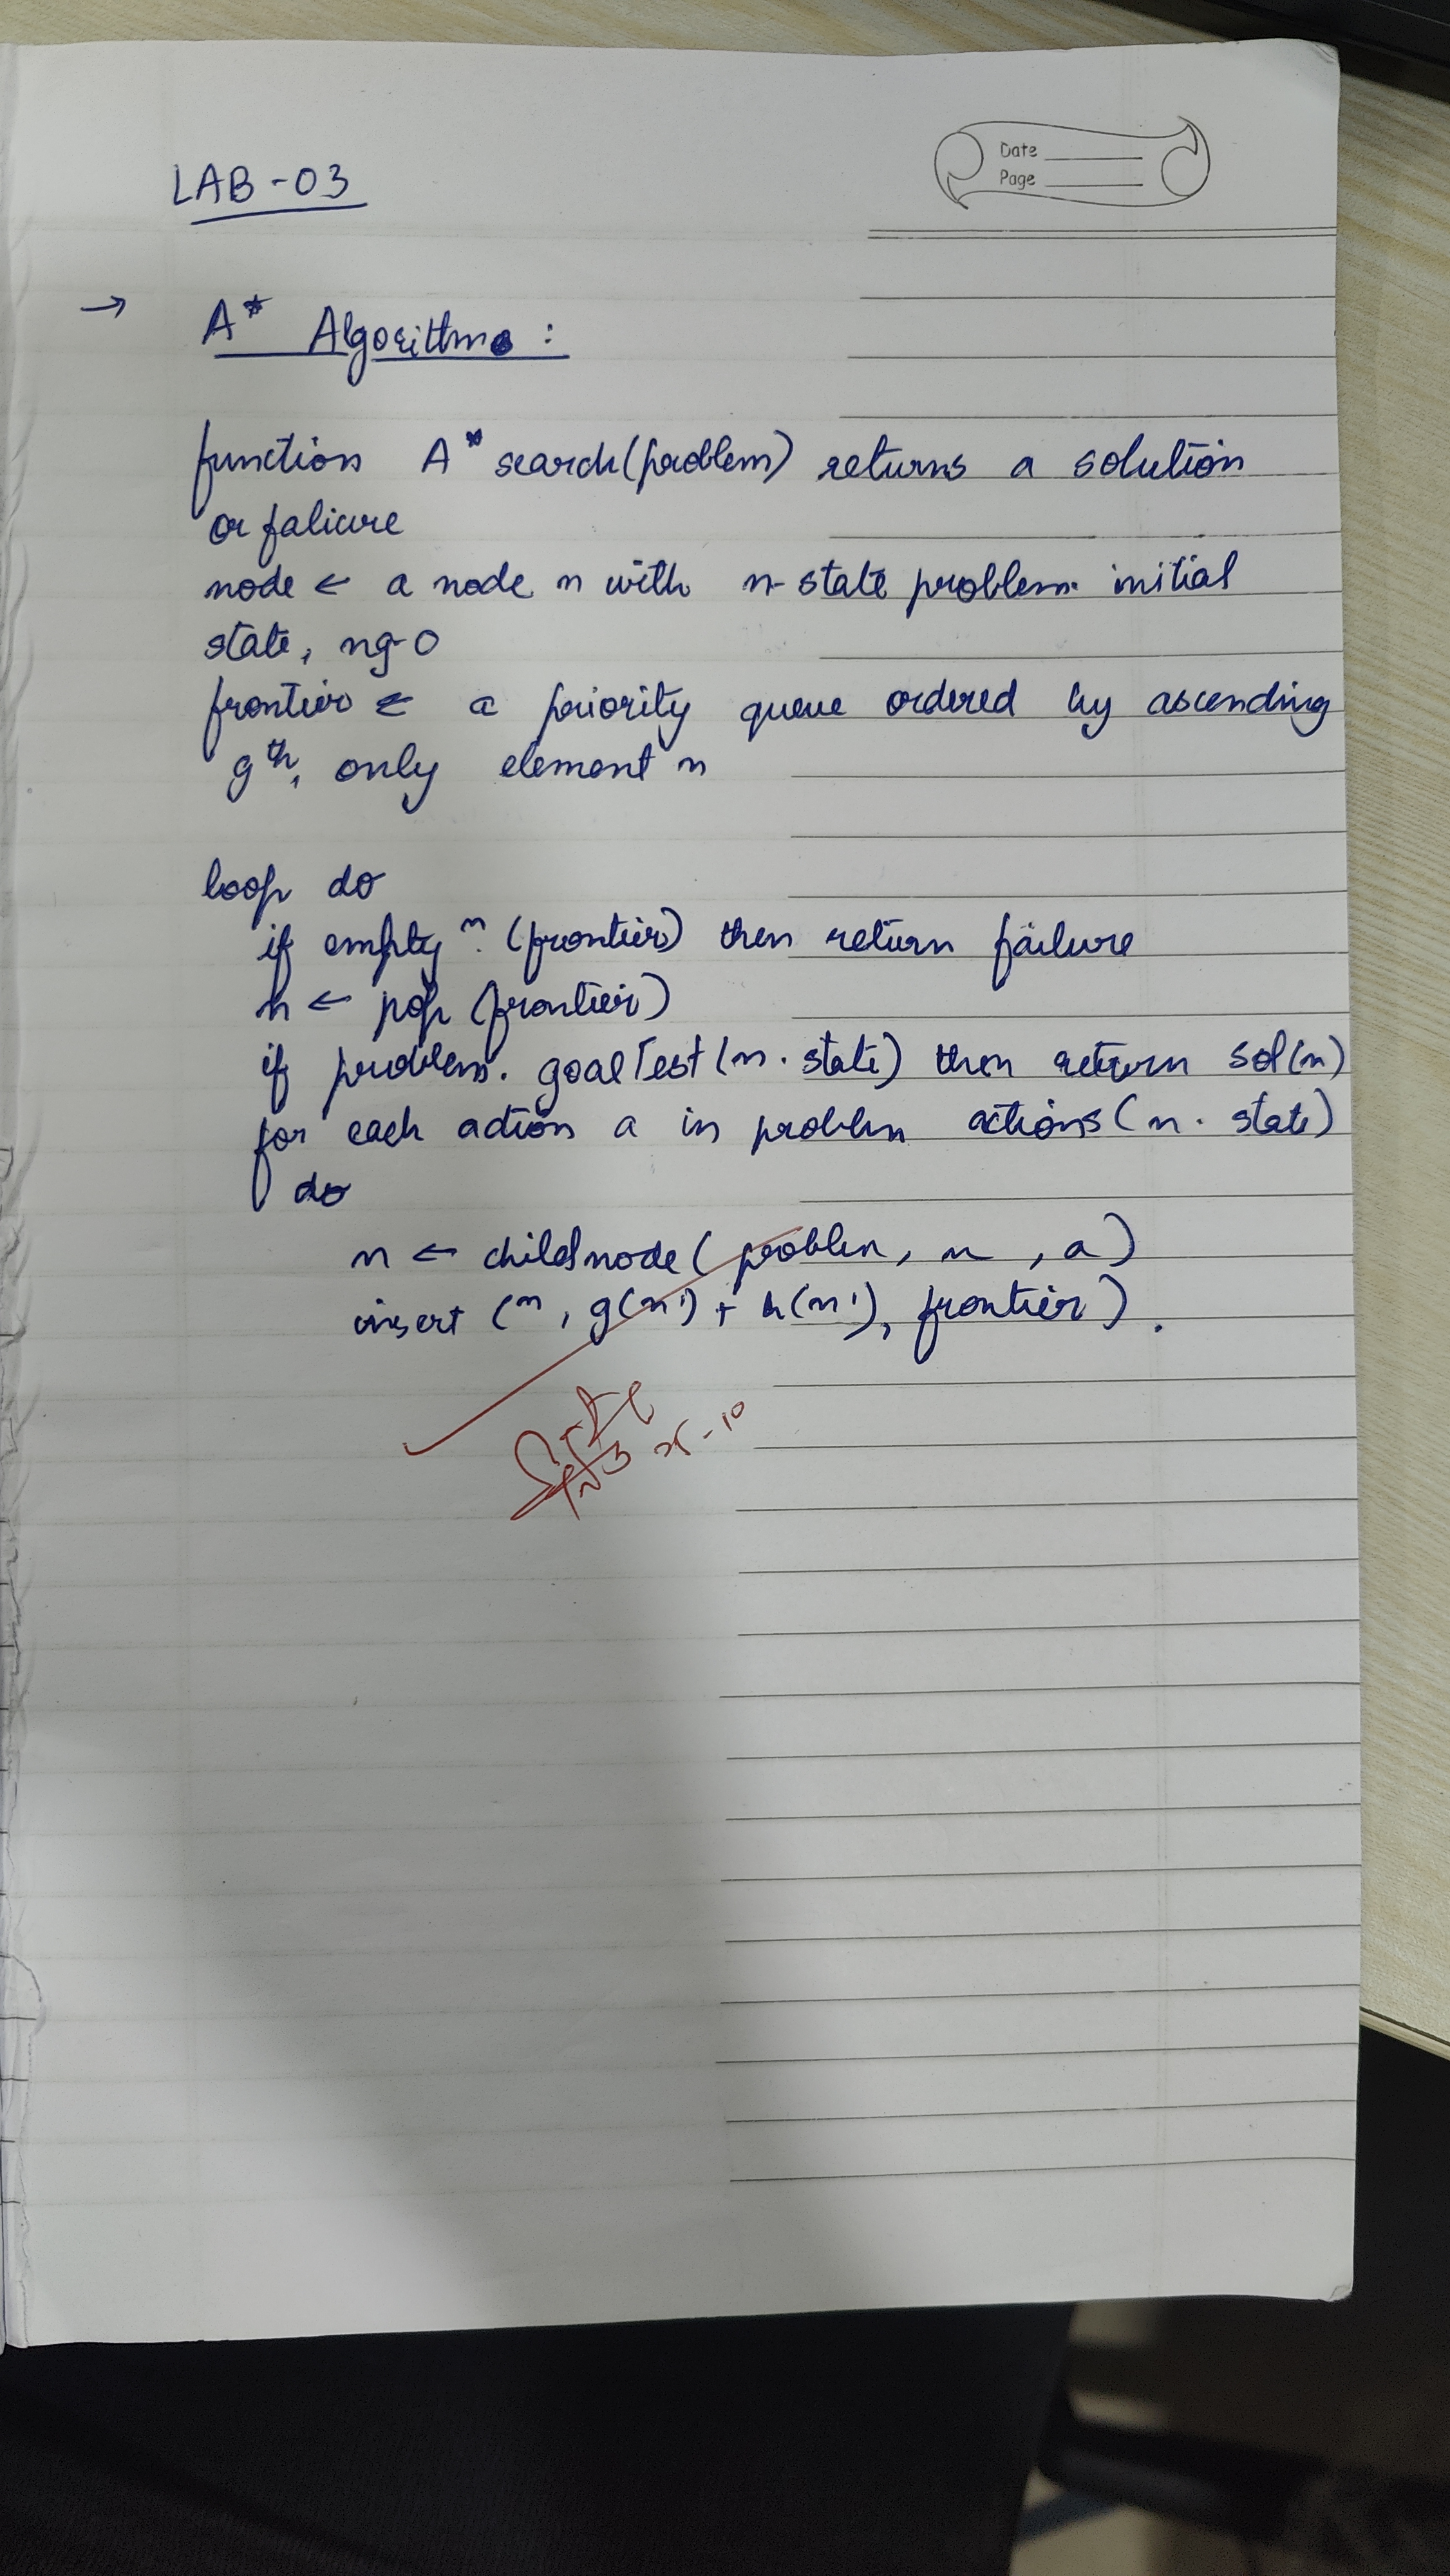 Date
Page
LAB-03
→ A* Algorithm :
function A* search(problem) returns a solution
or falicure
node ← a node n with n-state problem. initial
state, ng-0
frontier ← a priority queue ordered by ascending
gth, only element n
loop do
if empty n? (frontier) then return failure
n ← pop (frontier)
if problem. goalTest(n. state) then return sol(n)
for each action a in problem actions(n. state)
do
n ← childnode(problem, n, a)
insert (n, g(n') + h(n'), frontier).